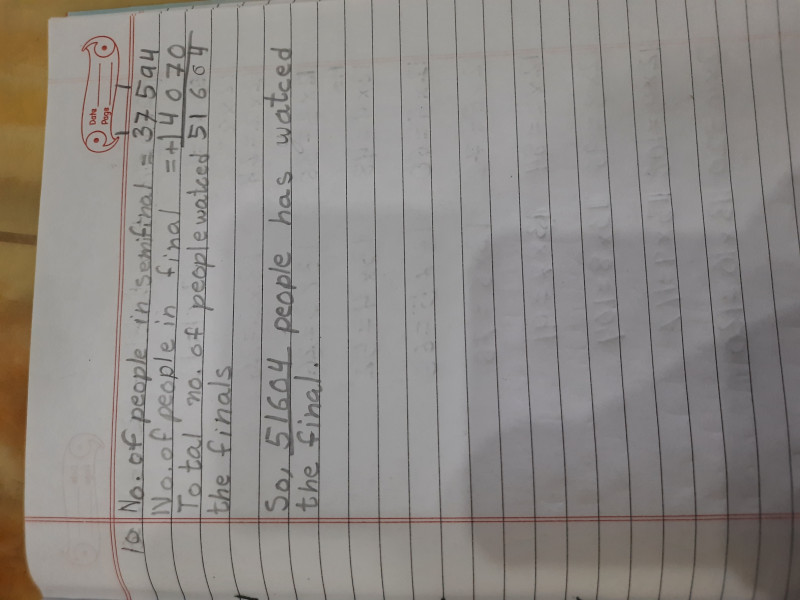 Date
Page
10 No. of people in semifinal = 37594
No. of people in final = +14070
Total no. of people watced 51664
the finals
So, 51604 people has watced
the final.